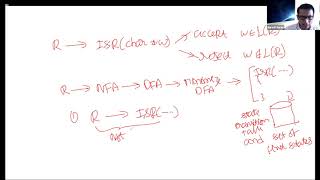 R → ISR(char *w) → accept w∈L(R)
→ reject w∉L(R)
R → NFA → DFA → minimize DFA → [ISR(...)
① R → ISR(...)
R
state transition table and
set of final states